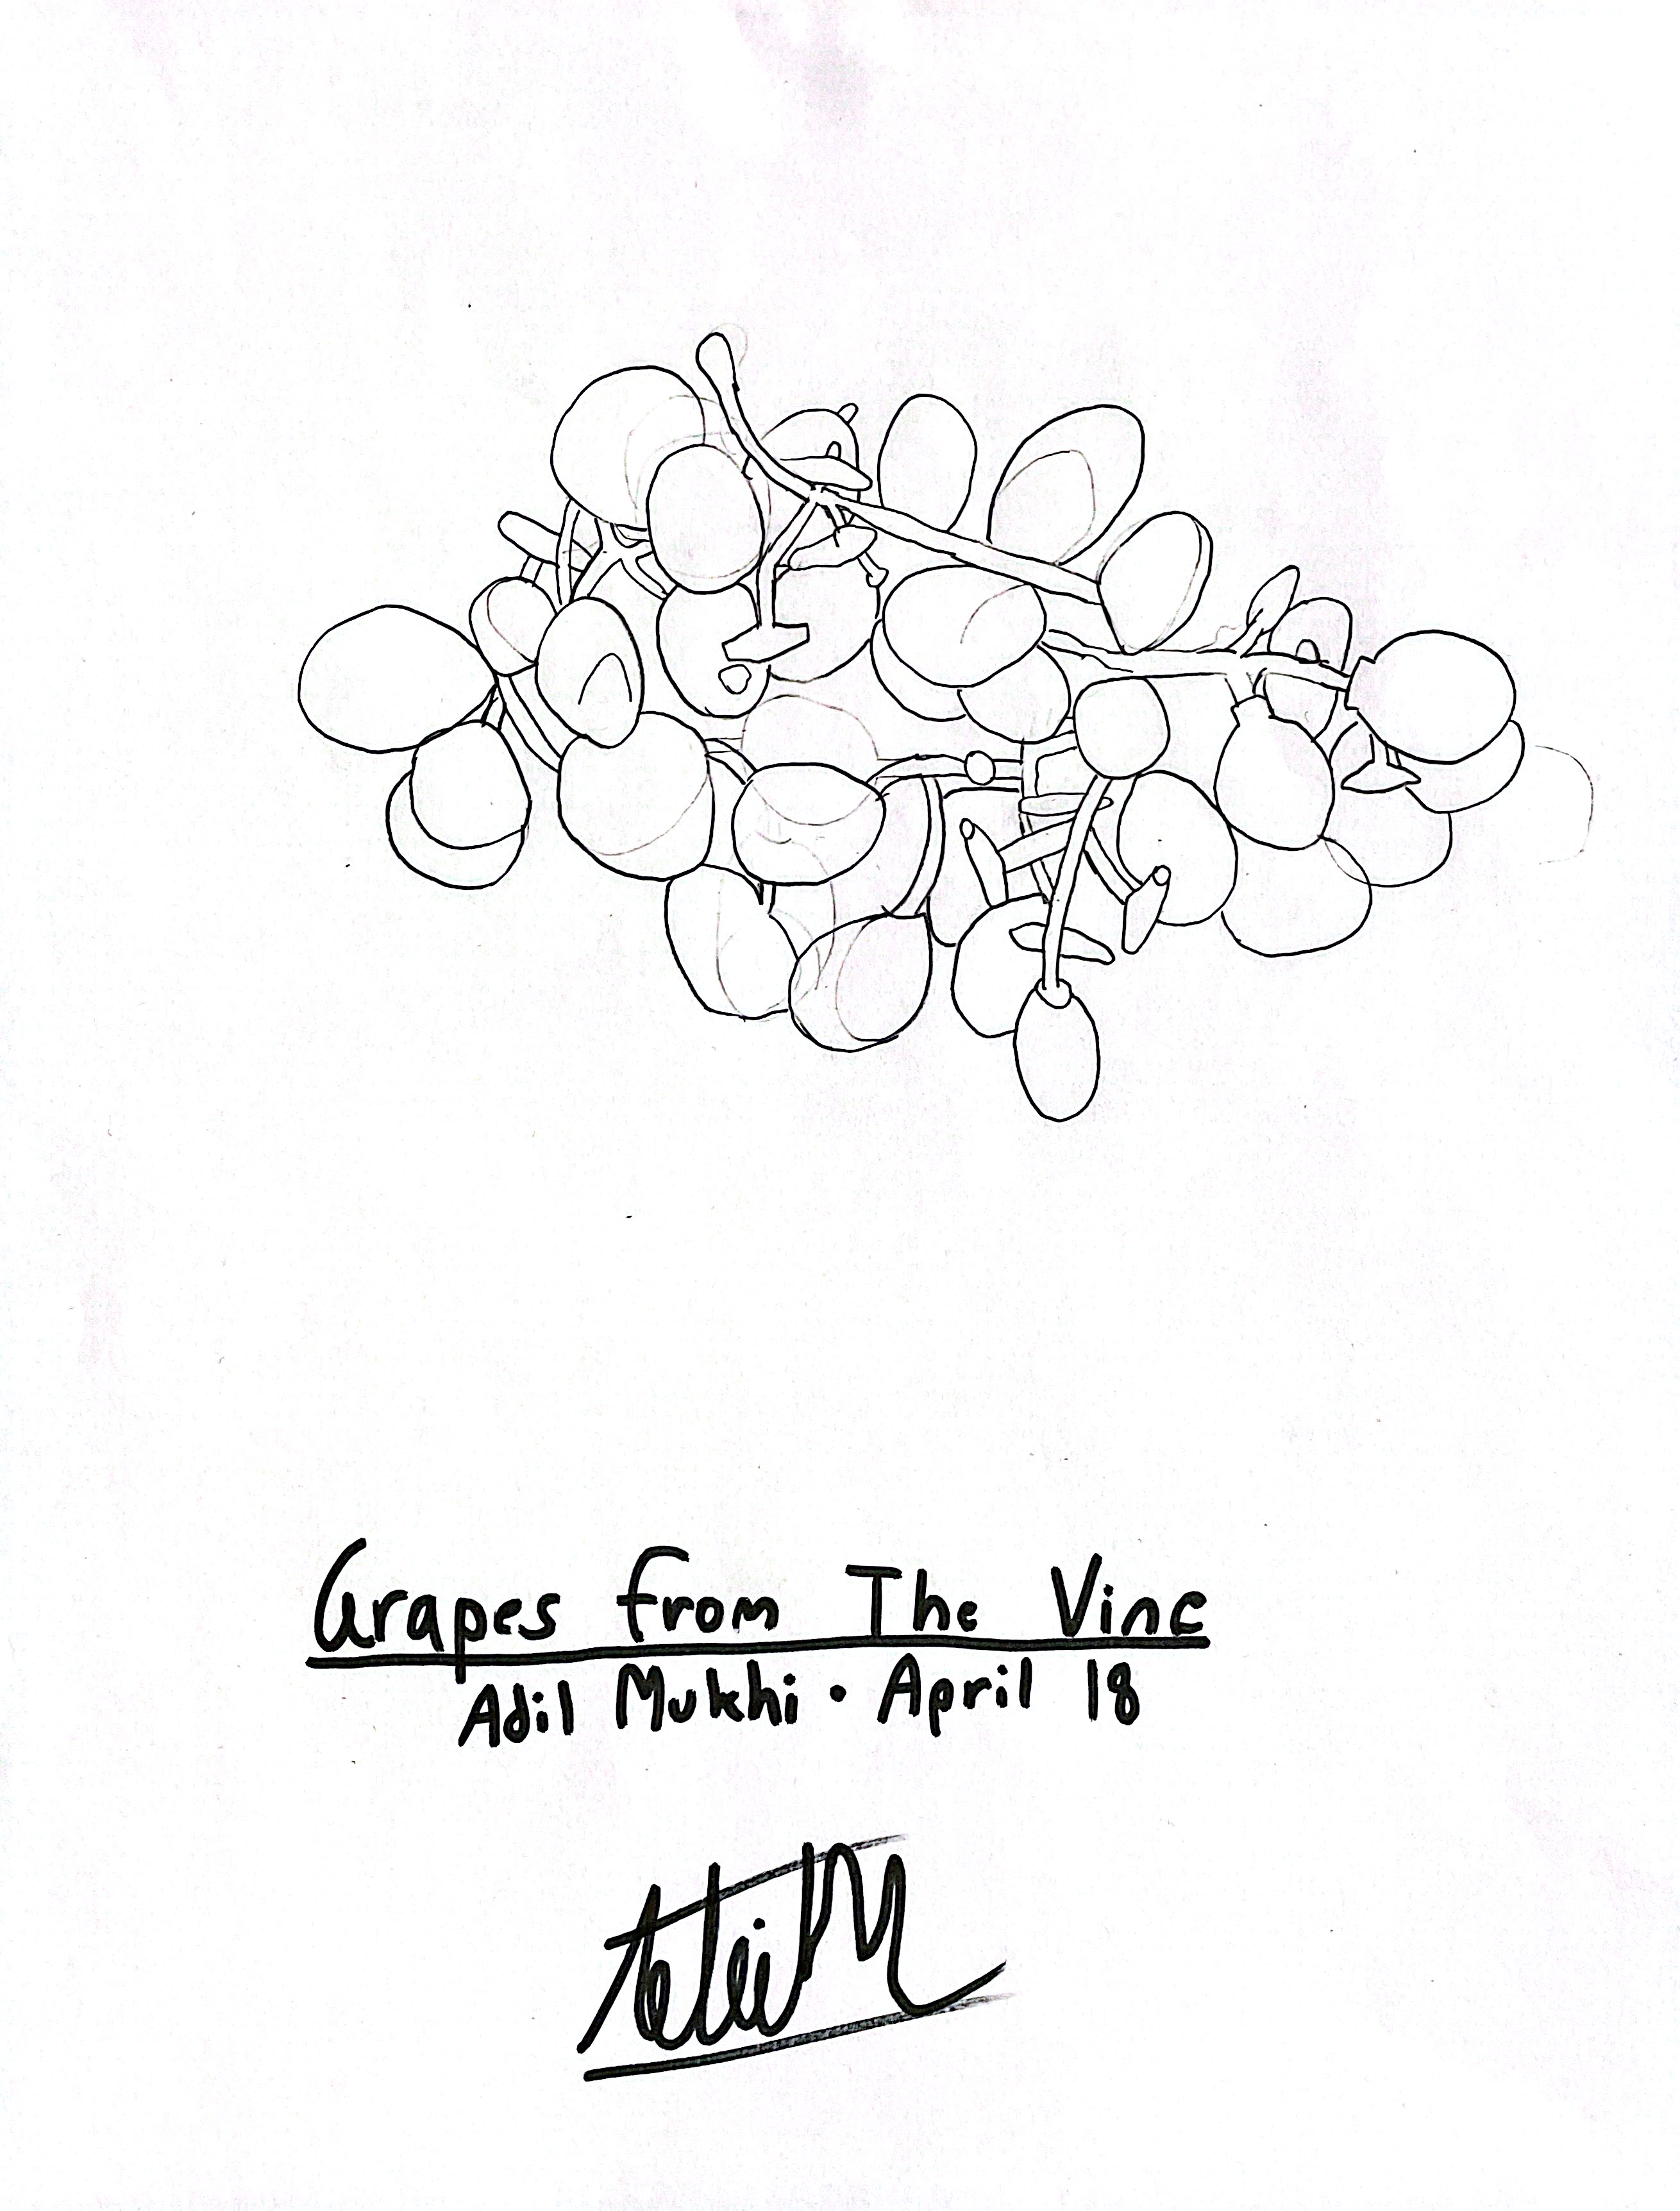 Grapes from The Vine
Adil Mukhi • April 18